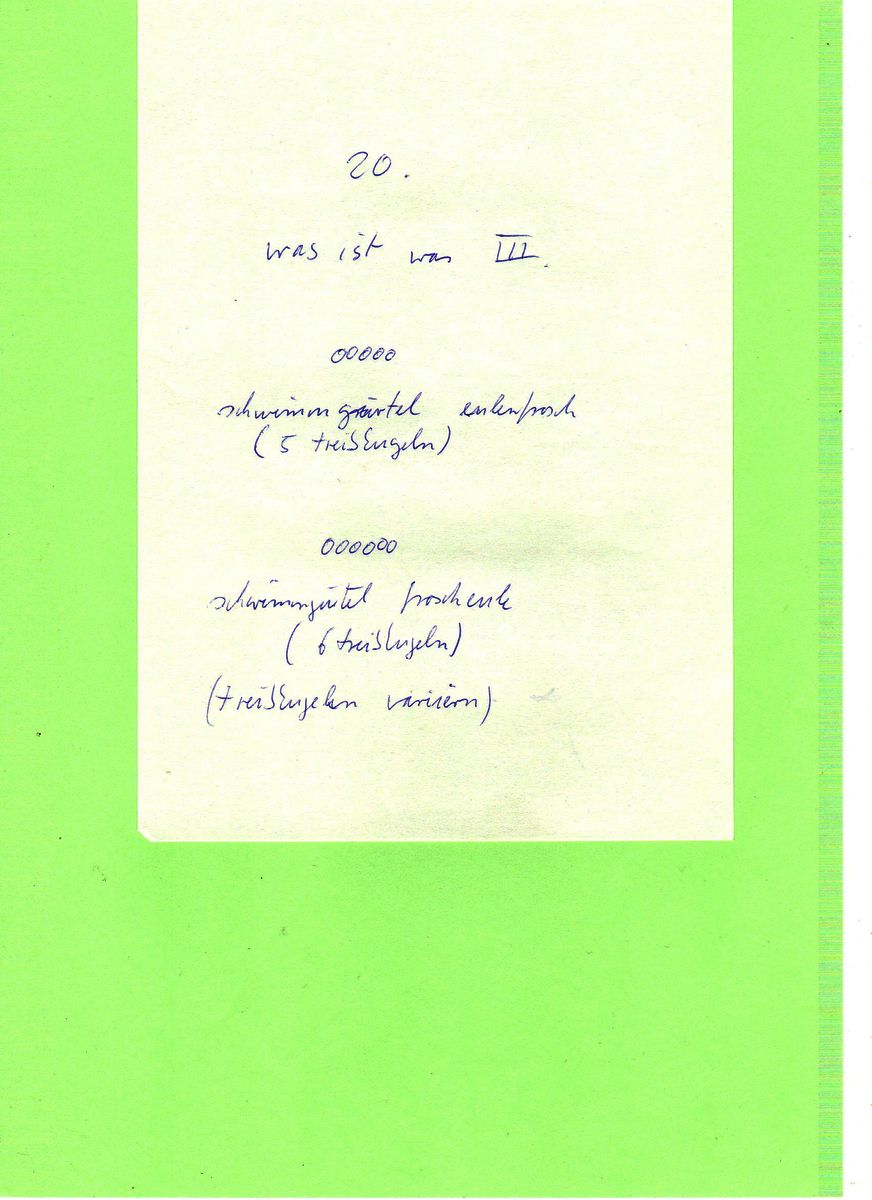 20.
was ist was III.
ooooo
schwimmgürtel eulenfrosch
(5 treibkugeln)
oooooo
schwimmgürtel froscheule
(6 treibkugeln)
(treibkugeln variiern)